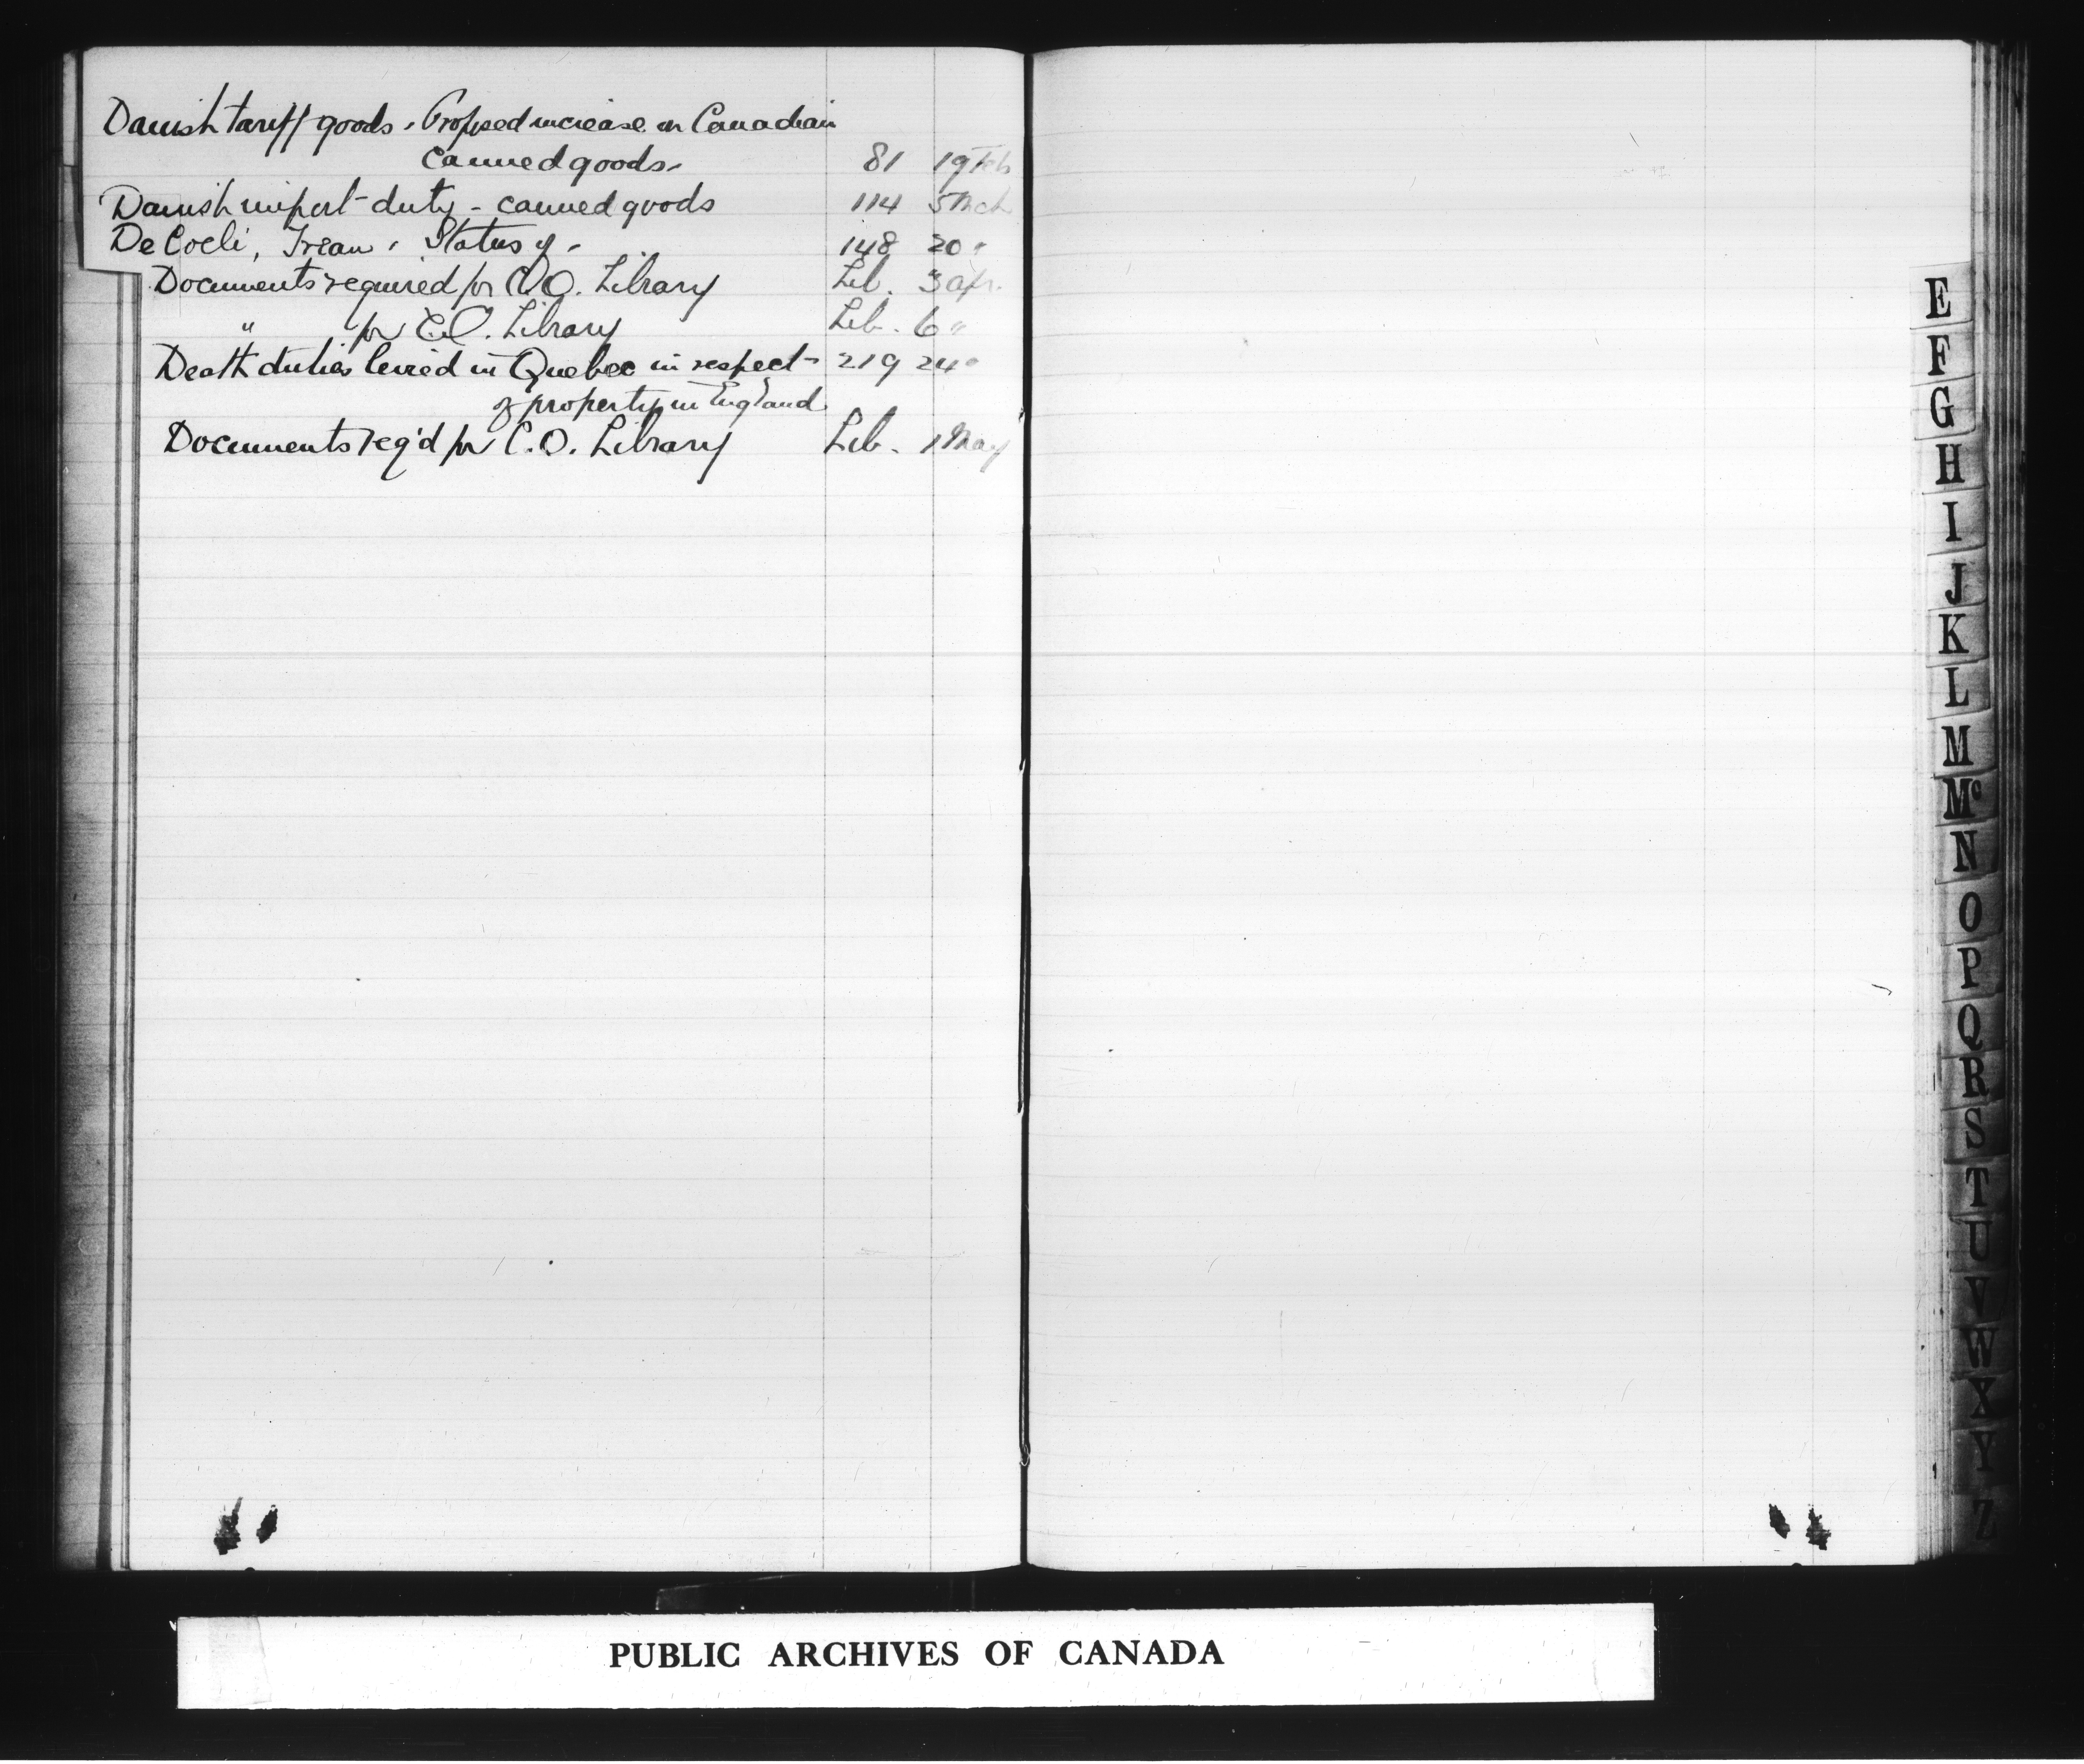 Danish tariff goods. Proposed increase on Canadian
canned goods. 81 19 Feb
Danish import duty - canned goods 114 5 Mch
De Coeli, . Status of. 148 20 "
Documents required for C.O. Library Lib. 3 Apr.
" for C.O. Library Lib. 6 "
Death duties levied in Quebec in respect 219 24 "
of property in England
Documents req'd for C.O. Library Lib. 1 May
E
F
G
H
I
J
K
L
M
Mc
N
O
P
Q
R
S
T
U
V
W
X
Y
Z
PUBLIC ARCHIVES OF CANADA